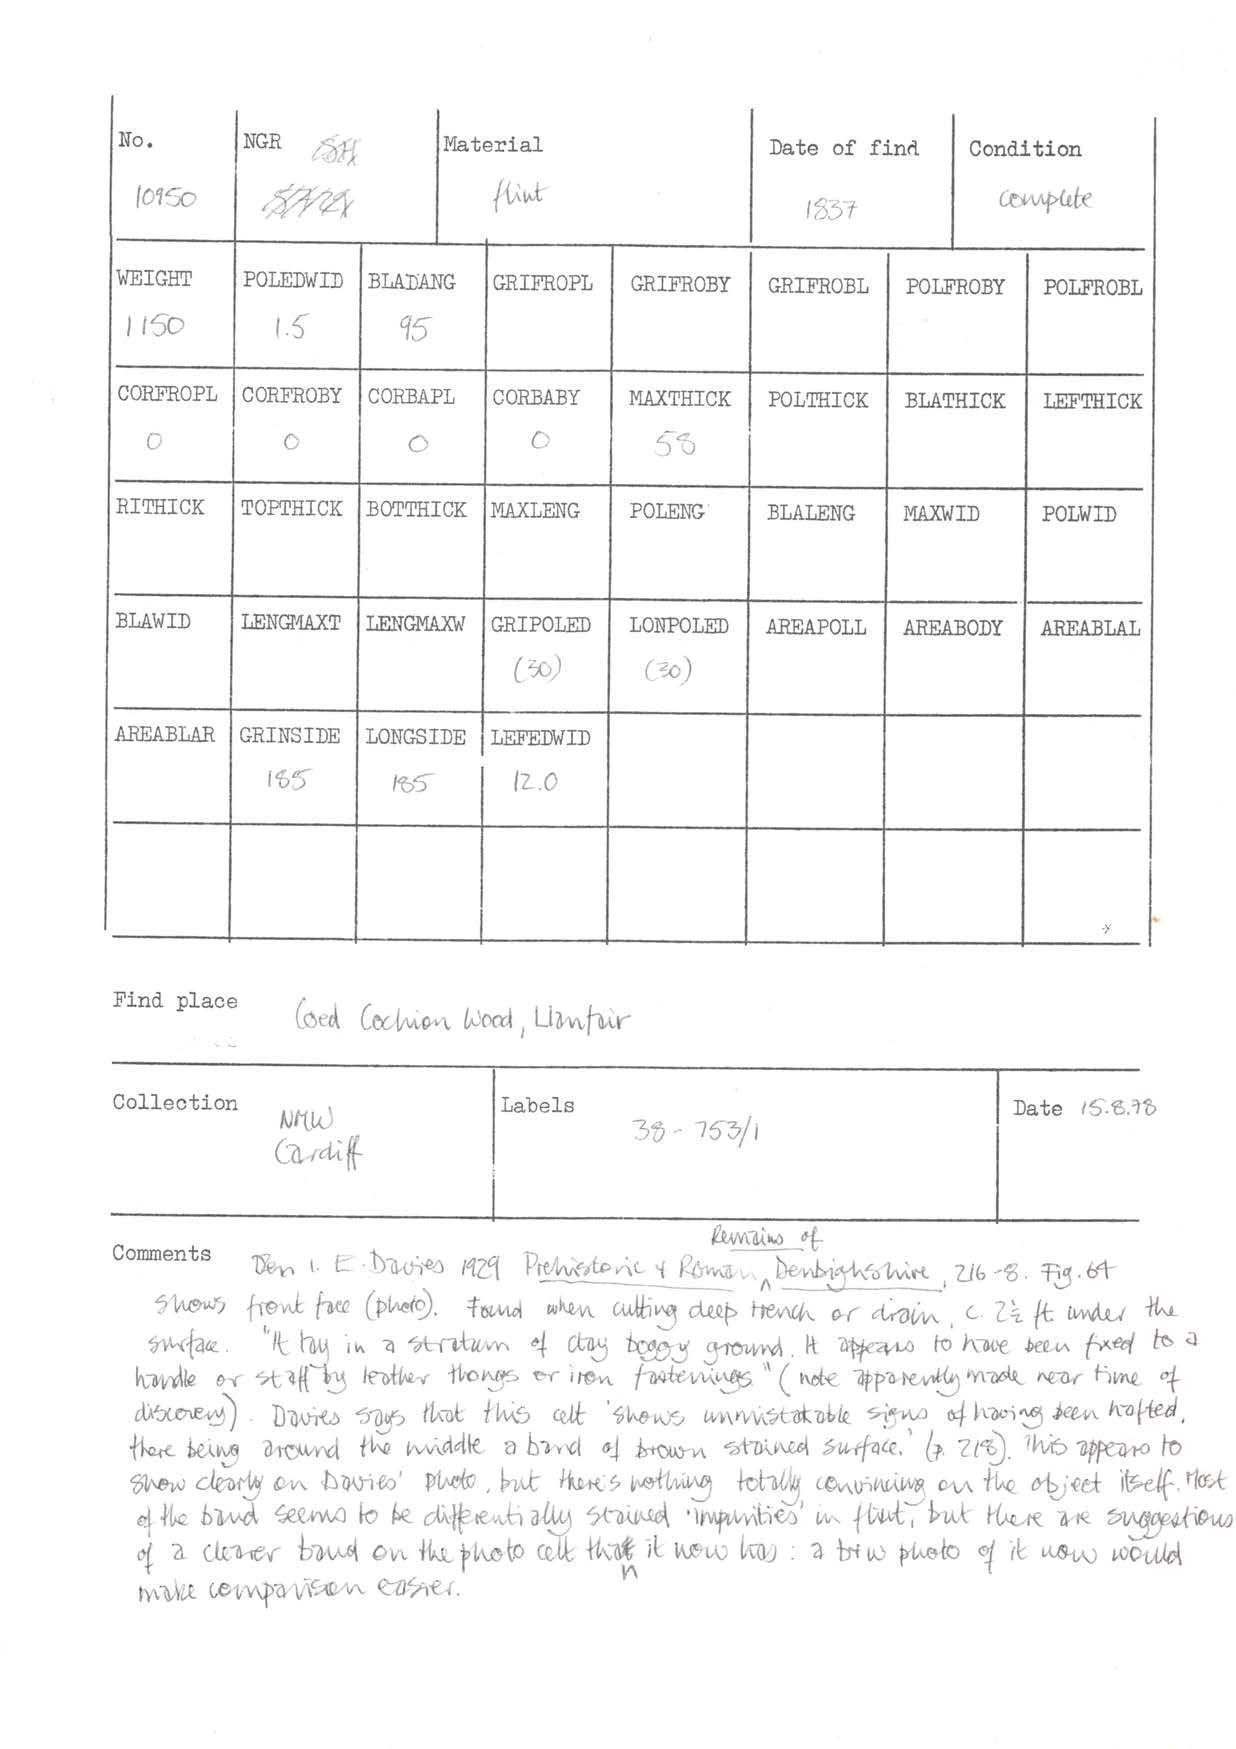 No. NGR Material Date of find Condition
10950 flint 1837 complete
WEIGHT POLEDWID BLADANG GRIFROPL GRIFROBY GRIFROBL POLFROBY POLFROBL
1150 1.5 95
CORFROPL CORFROBY CORBAPL CORBABY MAXTHICK POLTHICK BLATHICK LEFTHICK
0 0 0 0 58
RITHICK TOPTHICK BOTTHICK MAXLENG POLENG BLALENG MAXWID POLWID
BLAWID LENGMAXT LENGMAXW GRIPOLED LONPOLED AREAPOLL AREABODY AREABLAL
(30) (30)
AREABLAR GRINSIDE LONGSIDE LEFEDWID
185 185 12.0
Find place Coed Cochion Wood, Llanfair
Collection NMW Labels 38-753/1 Date 15.8.78
Cardiff
Remains of
Comments Den 1. E. Davies 1929 Prehistoric & Roman ^ Denbighshire, 216-8. Fig. 64
shows front face (photo). Found when cutting deep trench or drain, c. 2½ ft. under the
surface. "It lay in a stratum of clay boggy ground. It appears to have been fixed to a
handle or staff by leather thongs or iron fastenings" (note apparently made near time of
discovery). Davies says that this celt 'shows unmistakable signs of having been hafted,
there being around the middle a band of brown stained surface.' (p. 218). This appears to
show clearly on Davies' photo, but there's nothing totally convincing on the object itself. Most
of the band seems to be differentially stained 'impurities' in flint, but there are suggestions
of a clearer band on the photo celt than it now has: a b+w photo of it now would
make comparison easier.